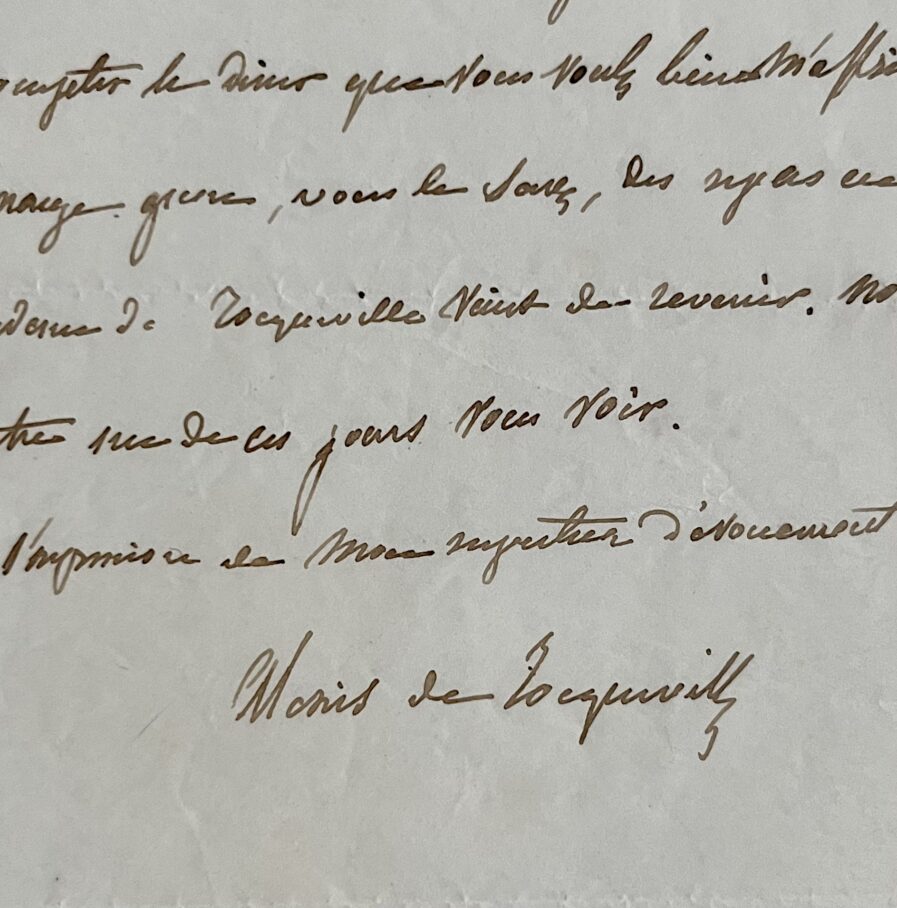 le diner que vous voulez bien m'offrir
mange guère, vous le savez, des repas en
de Tocqueville vient de revenir. No
un de ces jours vous voir.
l'expression de mon respectueux dévouement
Alexis de Tocqueville